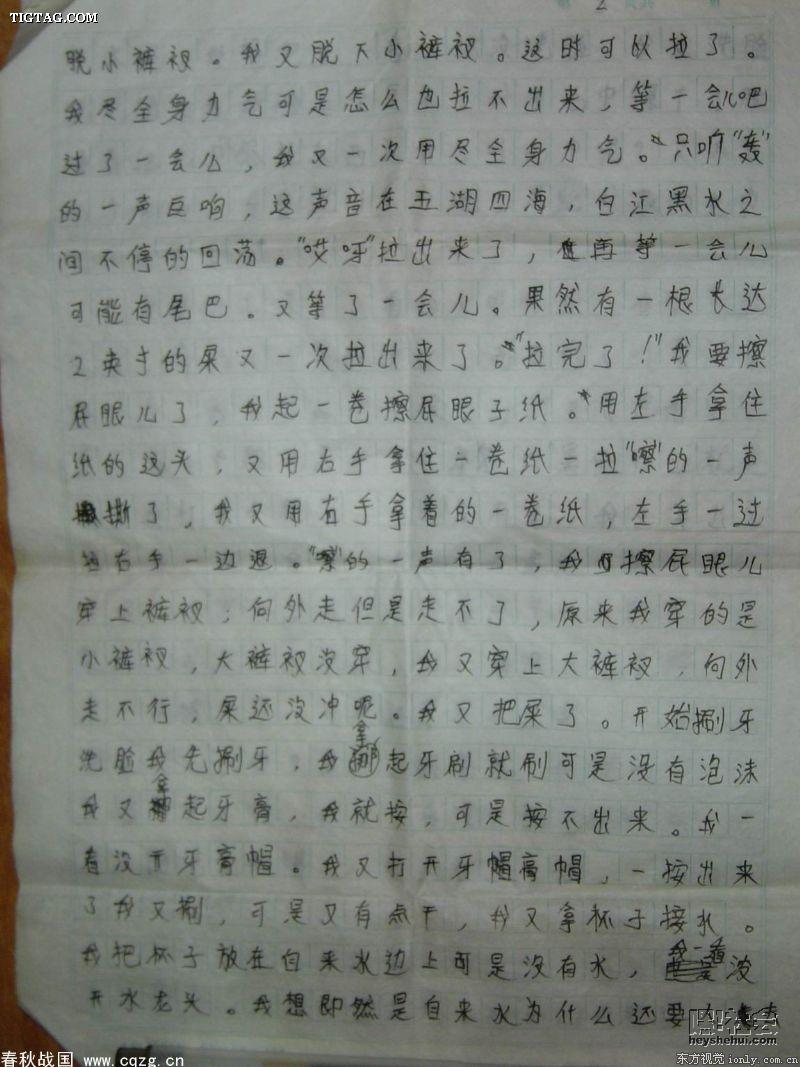 TIGTAG.COM
2
脱小裤衩。我又脱下小裤衩。这时可以拉了。
我尽全身力气可是怎么也拉不出来，等一会儿吧
过了一会儿，我又一次用尽全身力气。只听"轰"
的一声巨响，这声音在五湖四海，白江黑水之
间不停的回荡。"哎呀"拉出来了，再等一会儿
可能有尾巴。又等了一会儿。果然有一根长达
2英寸的屎又一次拉出来了。"拉完了！"我要擦
屁眼儿了，我起一卷擦屁眼子纸。用左手拿住
纸的这头，又用右手拿住一卷纸一拉"嚓"的一声
撕了，我又用右手拿着的一卷纸，左手一过
右手一边退。"嚓"的一声有了，我擦屁眼儿
穿上裤衩；向外走但是走不了，原来我穿的是
小裤衩，大裤衩没穿，我又穿上大裤衩，向外
走不行，屎还没冲呢。我又把屎了。开始捌牙
洗脸我先捌牙，我拿起牙刷就刷可是没有泡沫
我又拿起牙膏，我就按，可是按不出来。我一
看没开牙膏帽。我又打开牙帽膏帽，一按出来
了我又捌，可是又有点干，我又拿杯子接水。
我把杯子放在自来水边上可是没有水，我一看没
开水龙头。我想即然是自来水为什么还要
黑社会
heyshehui.com
春秋战国 www.cqzg.cn
东方视觉 ionly.com.cn